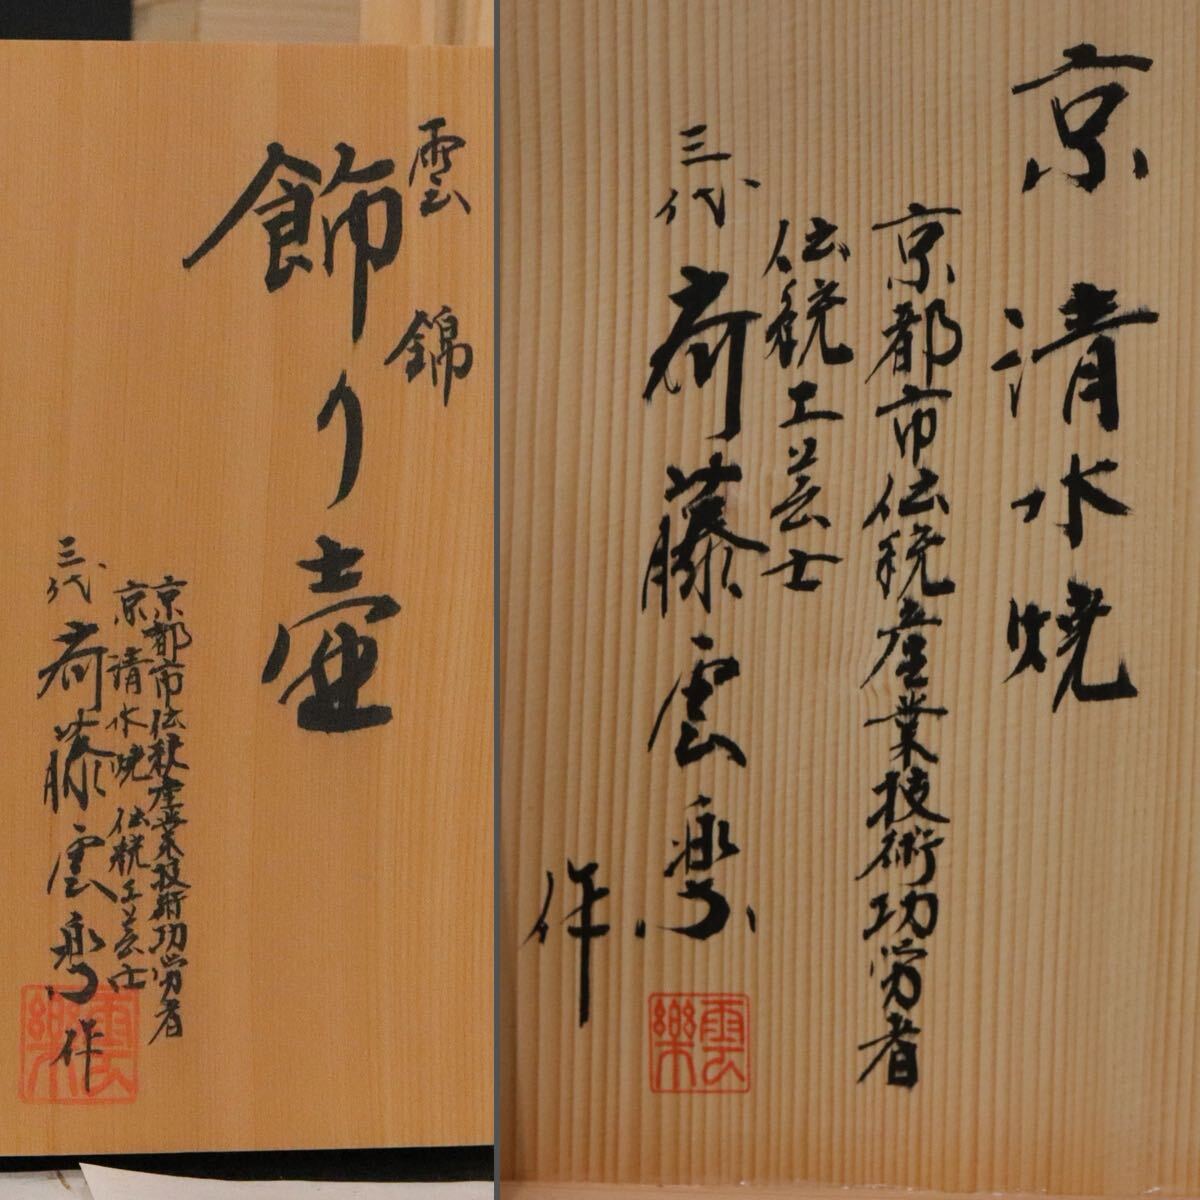 雲錦
飾り壷
京都市伝統産業技術功労者
京清水焼伝統工芸士
三代斉藤雲楽作
雲楽
京清水焼
京都市伝統産業技術功労者
伝統工芸士
三代斉藤雲楽
作
雲楽